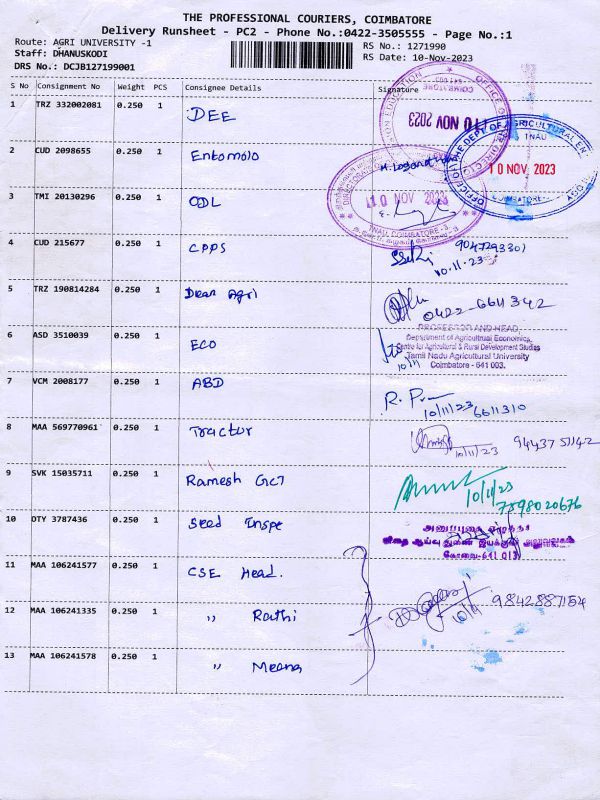 THE PROFESSIONAL COURIERS, COIMBATORE
Delivery Runsheet - PC2 - Phone No.:0422-3505555 - Page No.:1
Route: AGRI UNIVERSITY -1
RS No.: 1271990
Staff: DHANUSKODI
RS Date: 10-Nov-2023
DRS No.: DCJB127199001
S No Consignment No Weight PCS Consignee Details Signature
1 TRZ 332002081 0.250 1 DEE
10 NOV 2023
2 CUD 2098655 0.250 1 Entomolo
TNAU
10 NOV 2023
COIMBATORE
3 TMI 20130296 0.250 1 ODL
10 NOV 2023
TNAU, COIMBATORE - 3.
4 CUD 215677 0.250 1 CPPS
9047293301
10.11.23
5 TRZ 190814284 0.250 1 Dean Agri
0422-6611342
PROFESSOR AND HEAD,
Department of Agricultural Economics,
Centre for Agricultural & Rural Development Studies
Tamil Nadu Agricultural University
Coimbatore - 641 003.
6 ASD 3510039 0.250 1 ECO
10/11
7 VCM 2008177 0.250 1 ABD
10/11/23 6611310
8 MAA 569770961 0.250 1 Tractor
10/11/23
9 SVK 15035711 0.250 1 Ramesh GCT
10/11/23
7598020676
10 DTY 3787436 0.250 1 Seed Inspe
கோவை-641 013.
11 MAA 106241577 0.250 1 CSE Head.
12 MAA 106241335 0.250 1 " Rathi
10/11 9842887154
13 MAA 106241578 0.250 1 " Meena